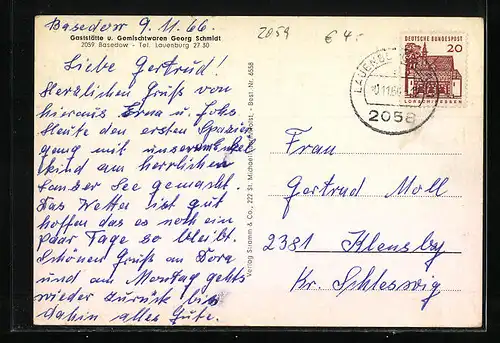 Basedow 9.11.66.
Gaststätte u. Gemischtwaren Georg Schmidt
2059 Basedow - Tel. Lauenburg 27 30
Liebe Gertrud!
Herzlichen Gruß von
hieraus Erna u. Johs.
Heute den ersten Spazier
gang mit unserem Enkel
kind am herrlichen
Lanber See gemacht.
Das Wetter ist gut
hoffen das es noch ein
paar Tage so bleibt.
Schönen Gruß an Dora
und am Montag gehts
wieder zurück bis
dahin alles Gute.
Verlag Stramm & Co., 222 St. Michaelisdonn/Holst. - Best. Nr. 6558
2059
€ 4.-
DEUTSCHE BUNDESPOST
20
LORSCH/HESSEN
LAUENBURG
10.11.66
2058
Frau
Gertrud Moll
2381 Klensby
Kr. Schleswig